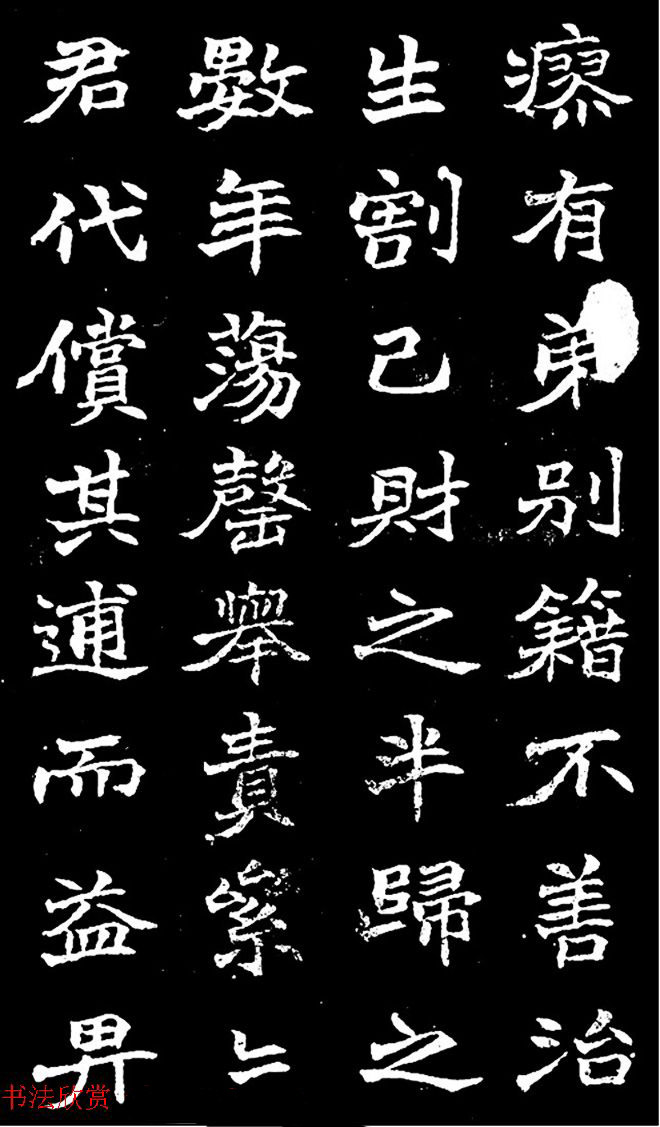 瘳有弟别籍不善治
生割己財之半歸之
數年蕩罄舉責絫〻
君代償其逋而益畀
书法欣赏